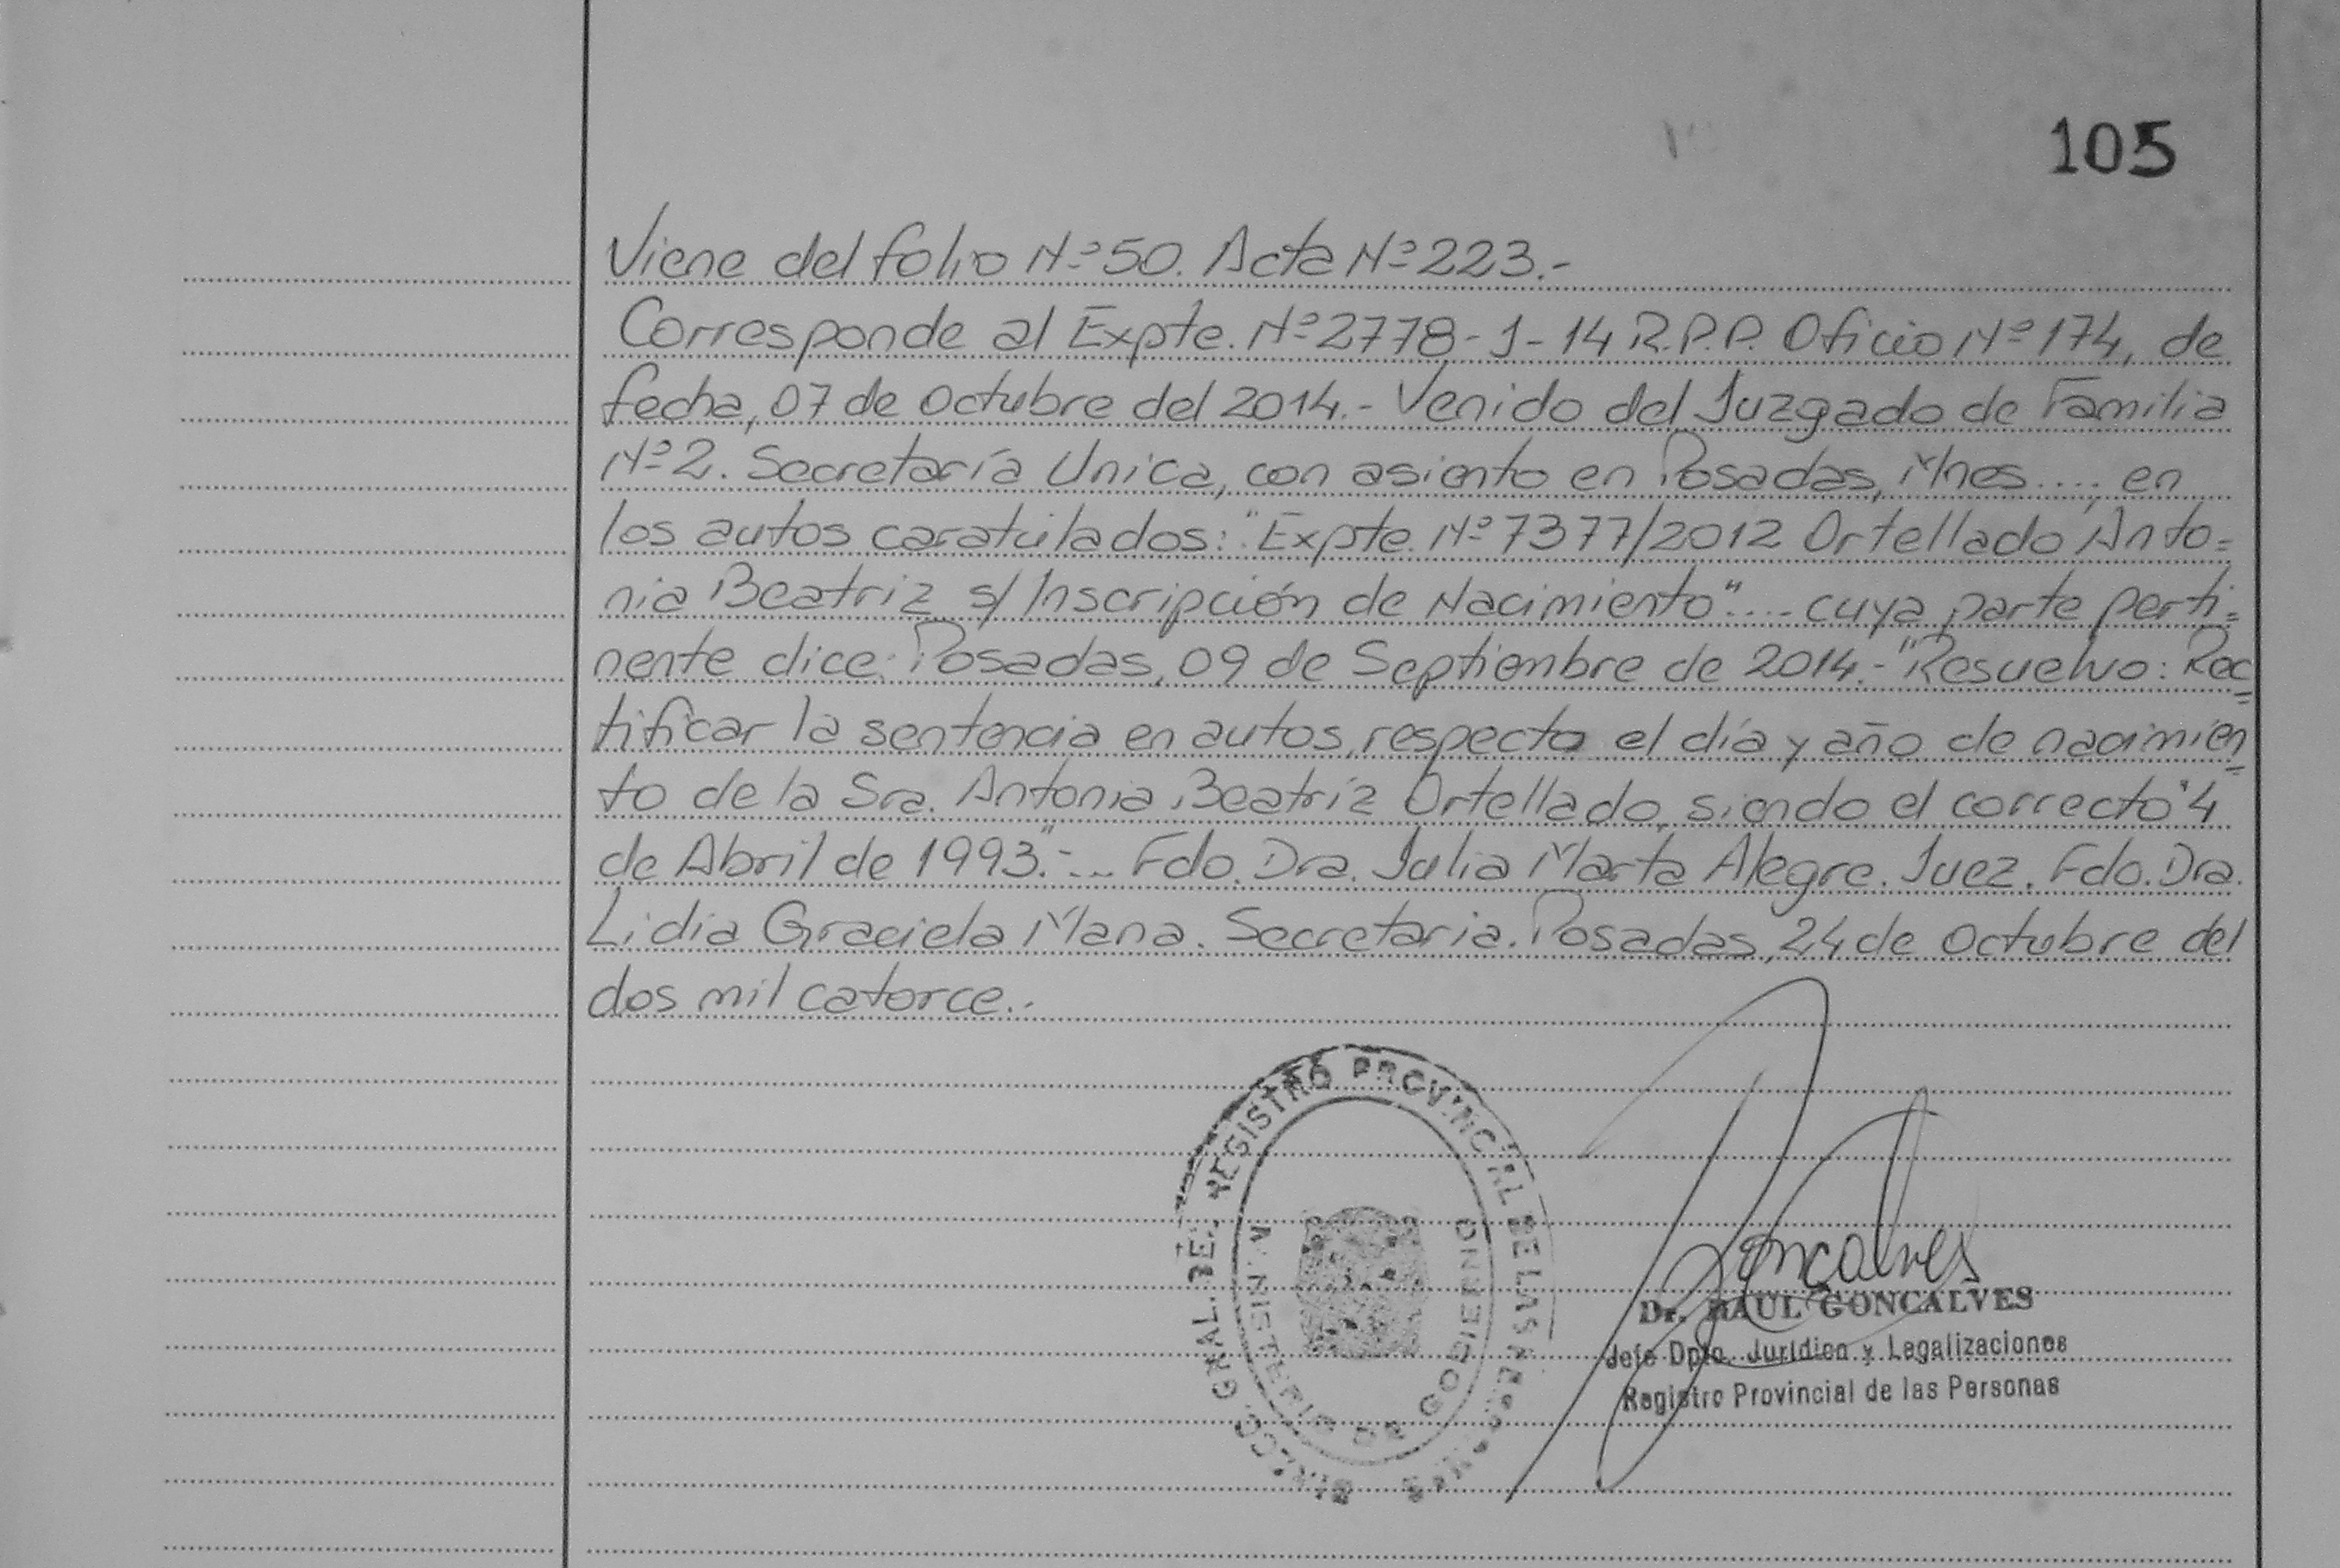 105
Viene del folio Nº 50. Acta Nº 223.-
Corresponde al Expte. Nº 2778-J-14 R.P.P. Oficio Nº 174, de
fecha, 07 de Octubre del 2014.- Venido del Juzgado de Familia
Nº 2. Secretaría Unica, con asiento en Posadas, Mnes...., en
los autos caratulados: "Expte. Nº 7377/2012 Ortellado Anto=
nia Beatriz s/ Inscripción de Nacimiento".... cuya parte perti=
nente dice: Posadas, 09 de Septiembre de 2014.- "Resuelvo: Rec=
tificar la sentencia en autos, respecto el día y año de nacimien=
to de la Sra. Antonia Beatríz Ortellado, siendo el correcto "4
de Abril de 1993".-... Fdo. Dra. Julia Marta Alegre. Juez. Fdo. Dra.
Lidia Graciela Mana. Secretaria. Posadas, 24 de Octubre del
dos mil catorce.-
DIRECC. GRAL. DEL REGISTRO PROVINCIAL DE LAS PERSONAS
MINISTERIO DE GOBIERNO
Goncalves
Dr. RAUL GONCALVES
Jefe Dpto. Jurídico y Legalizaciones
Registro Provincial de las Personas